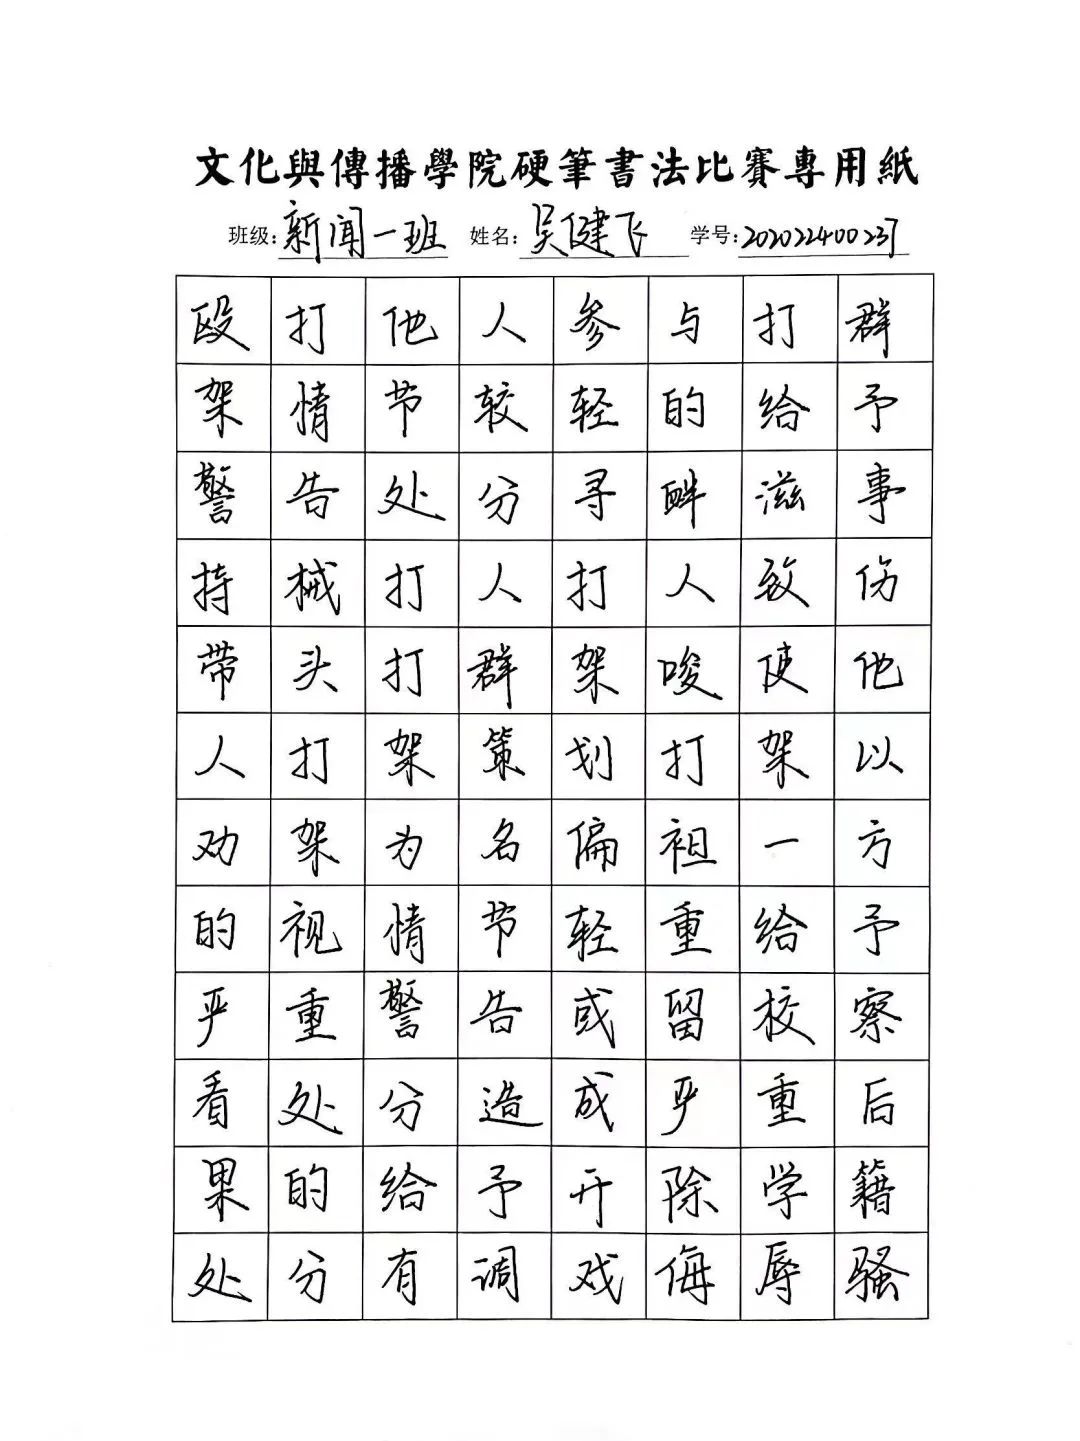 文化與傳播學院硬筆書法比賽專用紙
班级:新闻一班 姓名:吴健飞 学号:20202240023
殴打他人参与打群
架情节较轻的给予
警告处分寻衅滋事
持械打人打人致伤
带头打群架唆使他
人打架策划打架以
劝架为名偏袒一方
的视情节轻重给予
严重警告或留校察
看处分造成严重后
果的给予开除学籍
处分有调戏侮辱骚